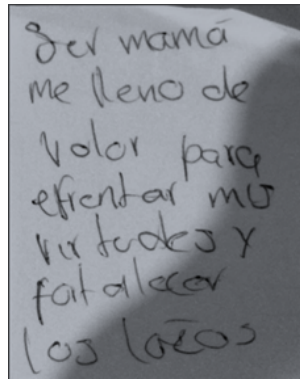 Ser mamá
me lleno de
valor para
efrentar mis
virtudes y
fortalecer
los lazos